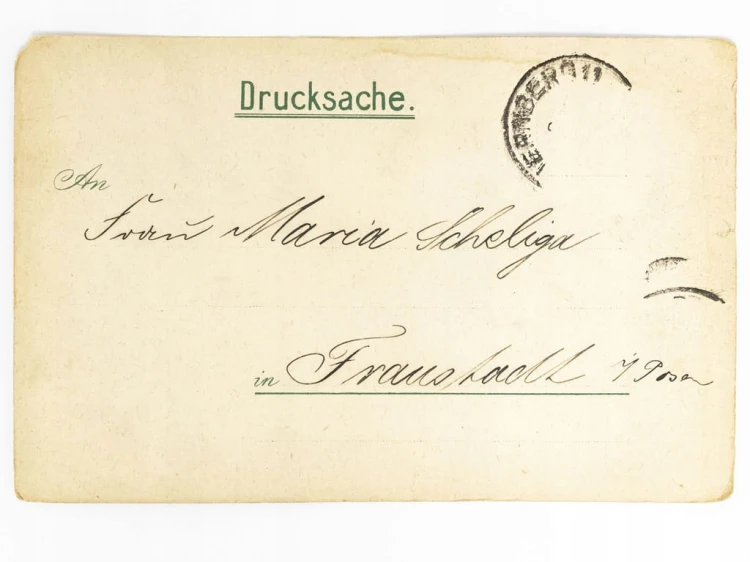 Drucksache.
ERNBERG 11
An
Frau Maria Scheliga
in Fraustadt i/Posen